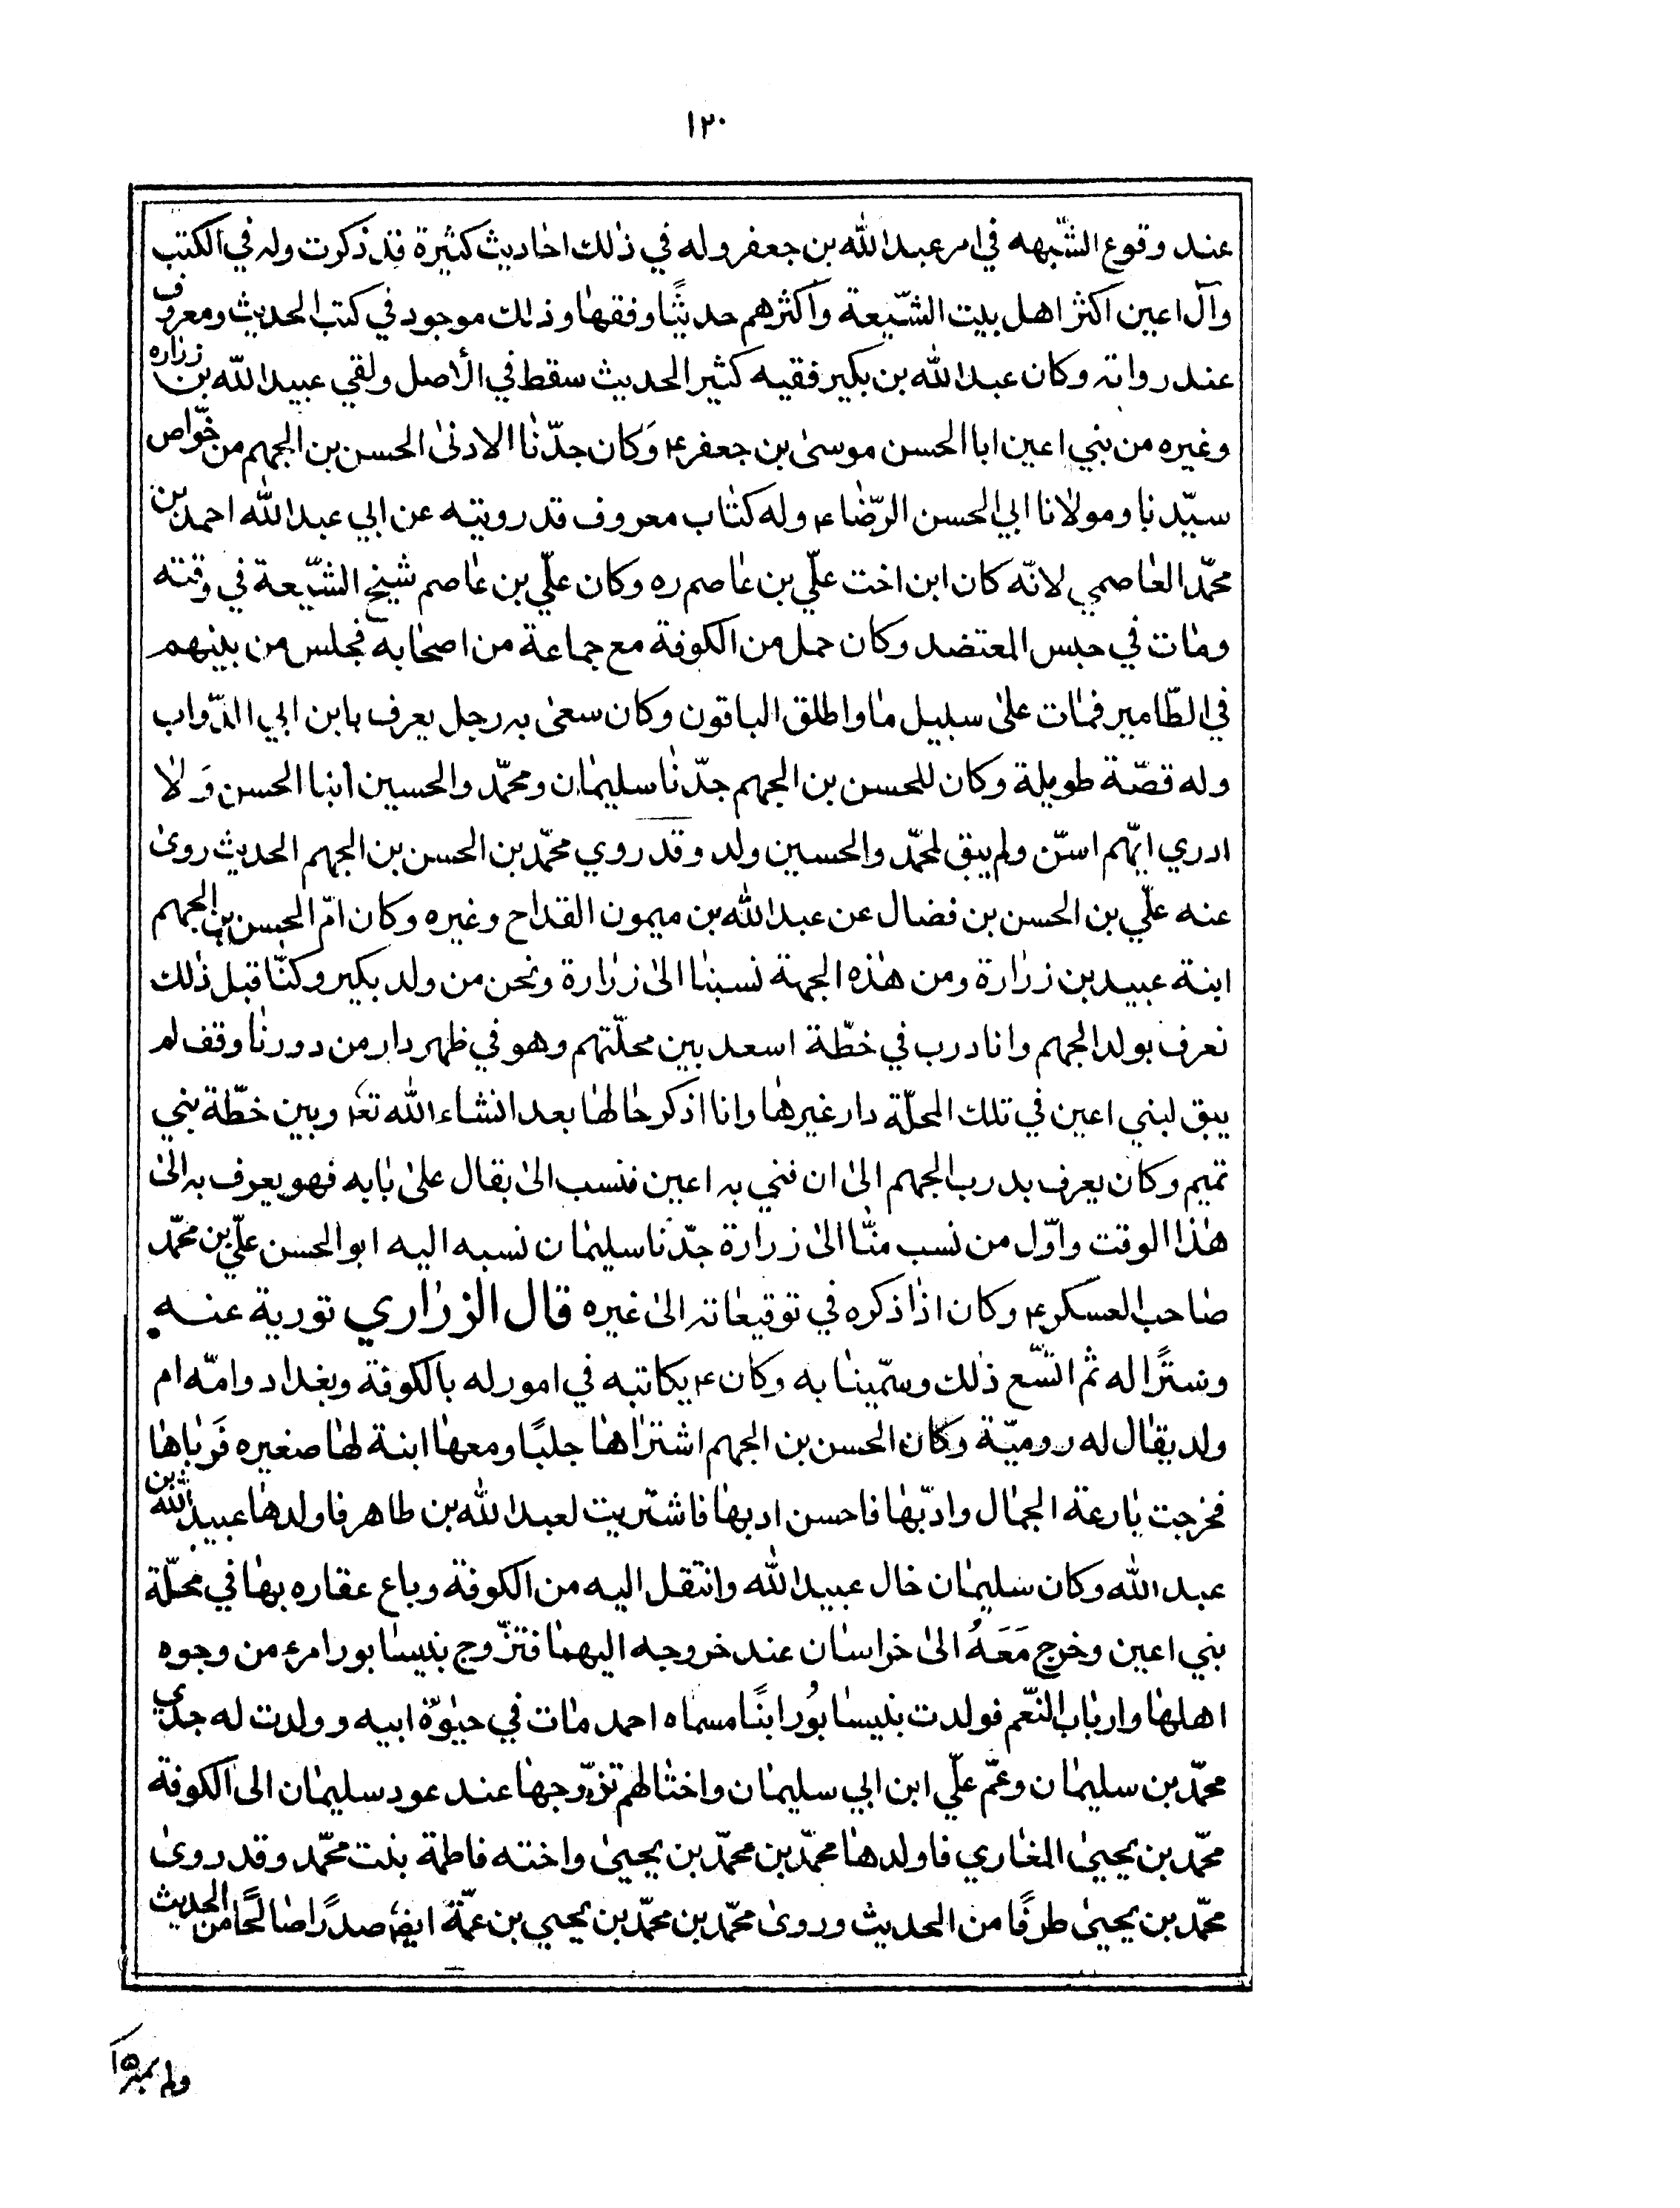 ١٢٠
عند وقوع الشّبهه في امر عبد الله بن جعفر وله في ذلك احاديث كثيرة قد ذكرت وله في الكتب
وآل اعين اكثر اهل بيت الشّيعة واكثرهم حديثًا وفقهًا وذلك موجود في كتب الحديث ومعروف
عند رواته وكان عبد الله بن بكير فقيه كثير الحديث سقط في الأصل ولقي عبيد الله بن زراره
وغيره من بني اعين ابا الحسن موسى بن جعفر ع وَكان جدّنا الادنى الحسن بن الجهم من خوّاص
سيّدنا ومولانا ابي الحسن الرّضا ع وله كتاب معروف قد رويته عن ابي عبد الله احمد بن
محمّد العاصمي لانّه كان ابن اخت علّي بن عاصم ره وكان علّي بن عاصم شيخ الشّيعة في وقته
ومات في حبس المعتضد وكان حمل من الكوفة مع جماعة من اصحابه فجلس من بينهم
في الطّامير فمات على سبيل ما واطلق الباقون وكان سعى به رجل يعرف بابن ابي الدّواب
وله قصّة طويلة وكان للحسن بن الجهم جدّنا سليمان ومحمّد والحسين ابنا الحسن وَلا
ادري ايّهم اسنّ ولم يبق لمحمّد والحسين ولد وقد روي محمّد بن الحسن بن الجهم الحديث روى
عنه علّي بن الحسن بن فضال عن عبد الله بن ميمون القداح وغيره وكان امّ الحسن بن الجهم
ابنة عبيد بن زرارة ومن هذه الجهة نسبنا الى زرارة ونحن من ولد بكير وكنّا قبل ذلك
نعرف بولد الجهم وانا درب في خطّة اسعد بين محلّتهم وهو في ظهر دار من دورنا وقف لم
يبق لبني اعين في تلك المحلّة دار غيرها وانا اذكر حالها بعد انشاء الله تع وبين خطّة بني
تميم وكان يعرف بدرب الجهم الى ان فني به اعين فنسب الى بقال على بابه فهو يعرف به الى
هذا الوقت واوّل من نسب منّا الى زرارة جدّنا سليمان نسبه اليه ابو الحسن علّي بن محمّد
صاحب العسكر ع وكان اذا ذكره في توقيعاته الى غيره قال الزراري تورية عنه
وسترًا له ثم اتّسع ذلك وسمّينا به وكان ع يكاتبه في امور له بالكوفة وبغداد وامّه ام
ولد يقال له روميّة وكان الحسن بن الجهم اشتراها جلبًا ومعها ابنة لها صغيره فَرباها
فخرجت بارعة الجمال وادّبها فاحسن ادبها فاشتريت لعبد الله بن طاهر فاولدها عبيد الله بن
عبد الله وكان سليمان خال عبيد الله وانتقل اليه من الكوفة وباع عقاره بها في محلّة
بني اعين وخرج مَعَهُ الى خراسان عند خروجه اليهما فتزّوج بنيسابور امرء من وجوه
اهلها وارباب النّعم فولدت بنيسابُور ابنًا مسماه احمد مات في حيٰوة ابيه وولدت له جدّي
محمّد بن سليمان وعمّ علّي ابن ابي سليمان واختا لهم تزّوجها عند عود سليمان الى الكوفة
محمّد بن يحيى المغاري فاولدها محمّد بن محمّد بن يحيى واخته فاطمة بنت محمّد وقد روى
محمّد بن يحيى طرفًا من الحديث وروى محمّد بن محمّد بن يحيي بن عمّة ايض صدرًا صالحًا من الحديث